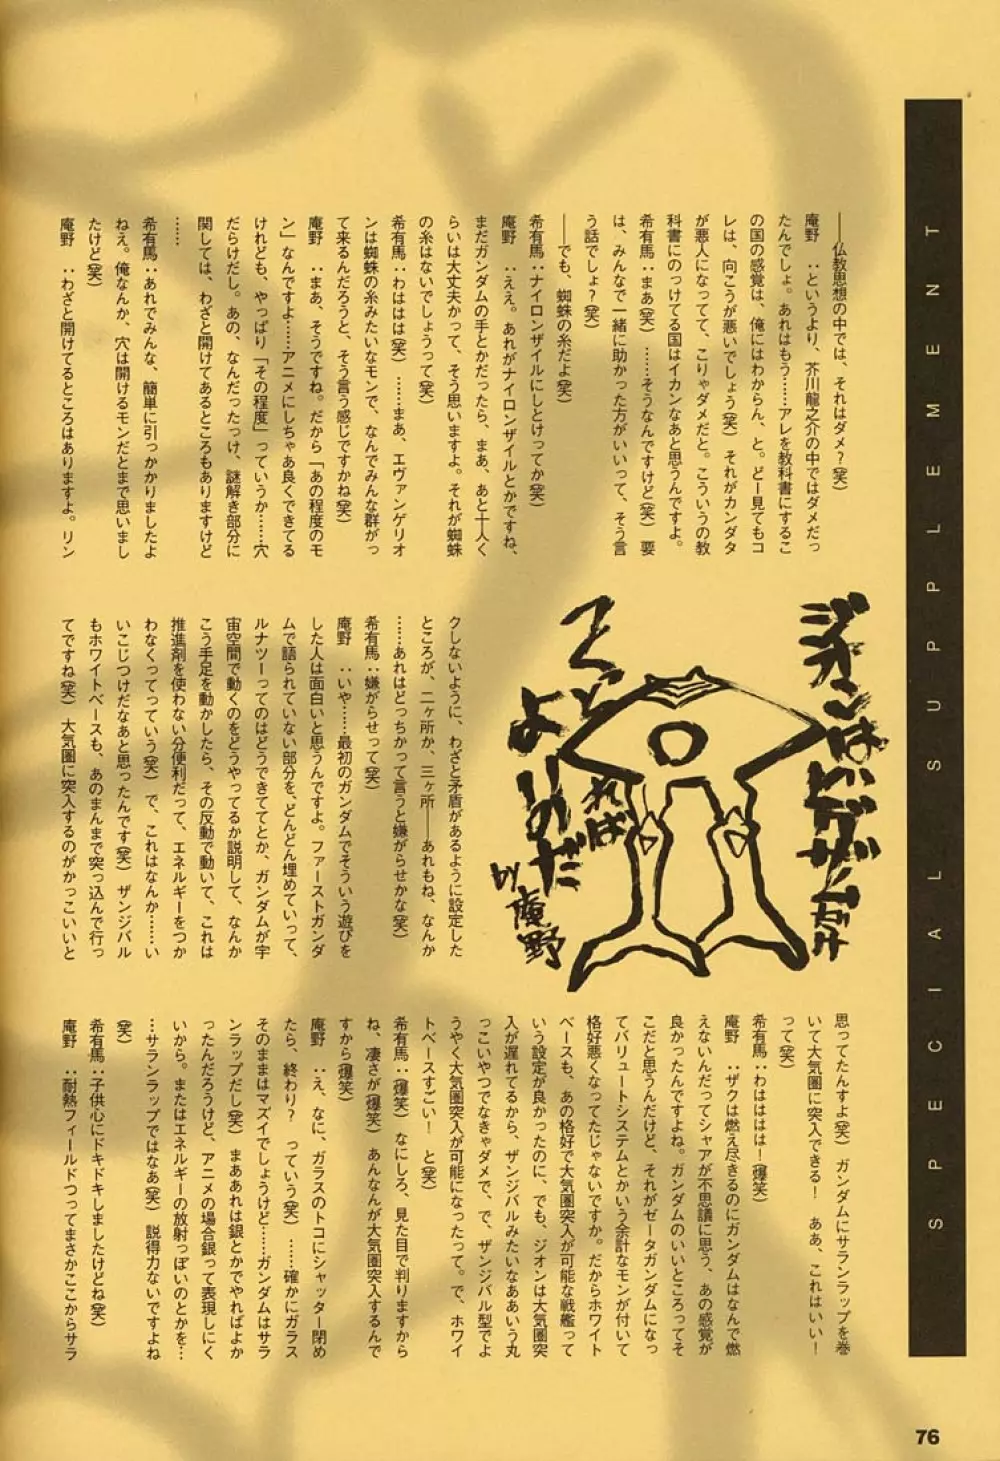 SPECIAL SUPPLEMENT
――仏教思想の中では、それはダメ？(笑)
庵野　：というより、芥川龍之介の中ではダメだっ
たんでしょ。あれはもう……アレを教科書にするこ
の国の感覚は、俺にはわからん、と。どー見てもコ
レは、向こうが悪いでしょう(笑) それがカンダタ
が悪人になってて、こりゃダメだと。こういうの教
科書にのっけてる国はイカンなあと思うんですよ。
希有馬：まあ(笑) ……そうなんですけど(笑) 要
は、みんなで一緒に助かった方がいいって、そう言
う話でしょ？(笑)
――でも、蜘蛛の糸だよ(笑)
希有馬：ナイロンザイルにしとけってか(笑)
庵野　：ええ。あれがナイロンザイルとかですね、
まだガンダムの手とかだったら、まあ、あと十人く
らいは大丈夫かって、そう思いますよ。それが蜘蛛
の糸はないでしょうって(笑)
希有馬：わははは(笑) ……まあ、エヴァンゲリオ
ンは蜘蛛の糸みたいなモンで、なんでみんな群がっ
て来るんだろうと、そう言う感じですかね(笑)
庵野　：まあ、そうですね。だから「あの程度のモ
ン」なんですよ……アニメにしちゃあ良くできてる
けれども、やっぱり「その程度」っていうか……穴
だらけだし。あの、なんだったっけ、謎解き部分に
関しては、わざと開けてあるところもありますけど
……
希有馬：あれでみんな、簡単に引っかかりましたよ
ねえ。俺なんか、穴は開けるモンだとまで思いまし
たけど(笑)
庵野　：わざと開けてるところはありますよ。リン
ジオンはいいザムだけ
つくれば
よいのだ
by庵野
クしないように、わざと矛盾があるように設定した
ところが、二ヶ所か、三ヶ所――あれもね、なんか
……あれはどっちかって言うと嫌がらせかな(笑)
希有馬：嫌がらせって(笑)
庵野　：いや……最初のガンダムでそういう遊びを
した人は面白いと思うんですよ。ファーストガンダ
ムで語られていない部分を、どんどん埋めていって、
ルナツーってのはどうできててとか、ガンダムが宇
宙空間で動くのをどうやってるか説明して、なんか
こう手足を動かしたら、その反動で動いて、これは
推進剤を使わない分便利だって、エネルギーをつか
わなくってっていう(笑) で、これはなんか……い
いこじつけだなあと思ったんです(笑) ザンジバル
もホワイトベースも、あのまんまで突っ込んで行っ
てですね(笑) 大気圏に突入するのがかっこいいと
思ってたんすよ(笑) ガンダムにサランラップを巻
いて大気圏に突入できる！　ああ、これはいい！
って(笑)
希有馬：わはははは！(爆笑)
庵野　：ザクは燃え尽きるのにガンダムはなんで燃
えないんだってシャアが不思議に思う、あの感覚が
良かったんですよね。ガンダムのいいところってそ
こだと思うんだけど、それがゼータガンダムになっ
てバリュートシステムとかいう余計なモンが付いて
格好悪くなってたじゃないですか。だからホワイト
ベースも、あの格好で大気圏突入が可能な戦艦って
いう設定が良かったのに、でも、ジオンは大気圏突
入が遅れてるから、ザンジバルみたいなああいう丸
っこいやつでなきゃダメで、で、ザンジバル型でよ
うやく大気圏突入が可能になったって。で、ホワイ
トベースすごい！　と(笑)
希有馬：(爆笑) なにしろ、見た目で判りますから
ね、凄さが(爆笑) あんなんが大気圏突入するんで
すから(爆笑)
庵野　：え、なに、ガラスのトコにシャッター閉め
たら、終わり？　っていう(笑) ……確かにガラス
そのままはマズイでしょうけど……ガンダムはサラ
ンラップだし(笑) まああれは銀とかでやればよか
ったんだろうけど、アニメの場合銀って表現しにく
いから。またはエネルギーの放射っぽいのとかを…
…サランラップではなあ(笑) 説得力ないですよね
(笑)
希有馬：子供心にドキドキしましたけどね(笑)
庵野　：耐熱フィールドつってまさかここからサラ
76